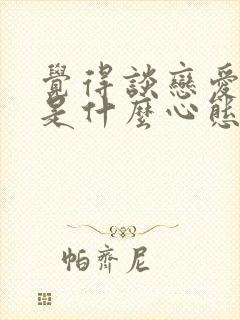 覺得談戀愛
是什麼心態
帕齊尼